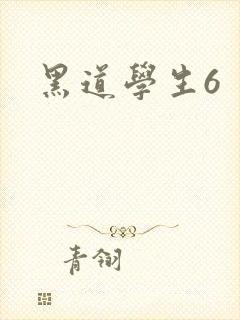 黑道學生6
青翎